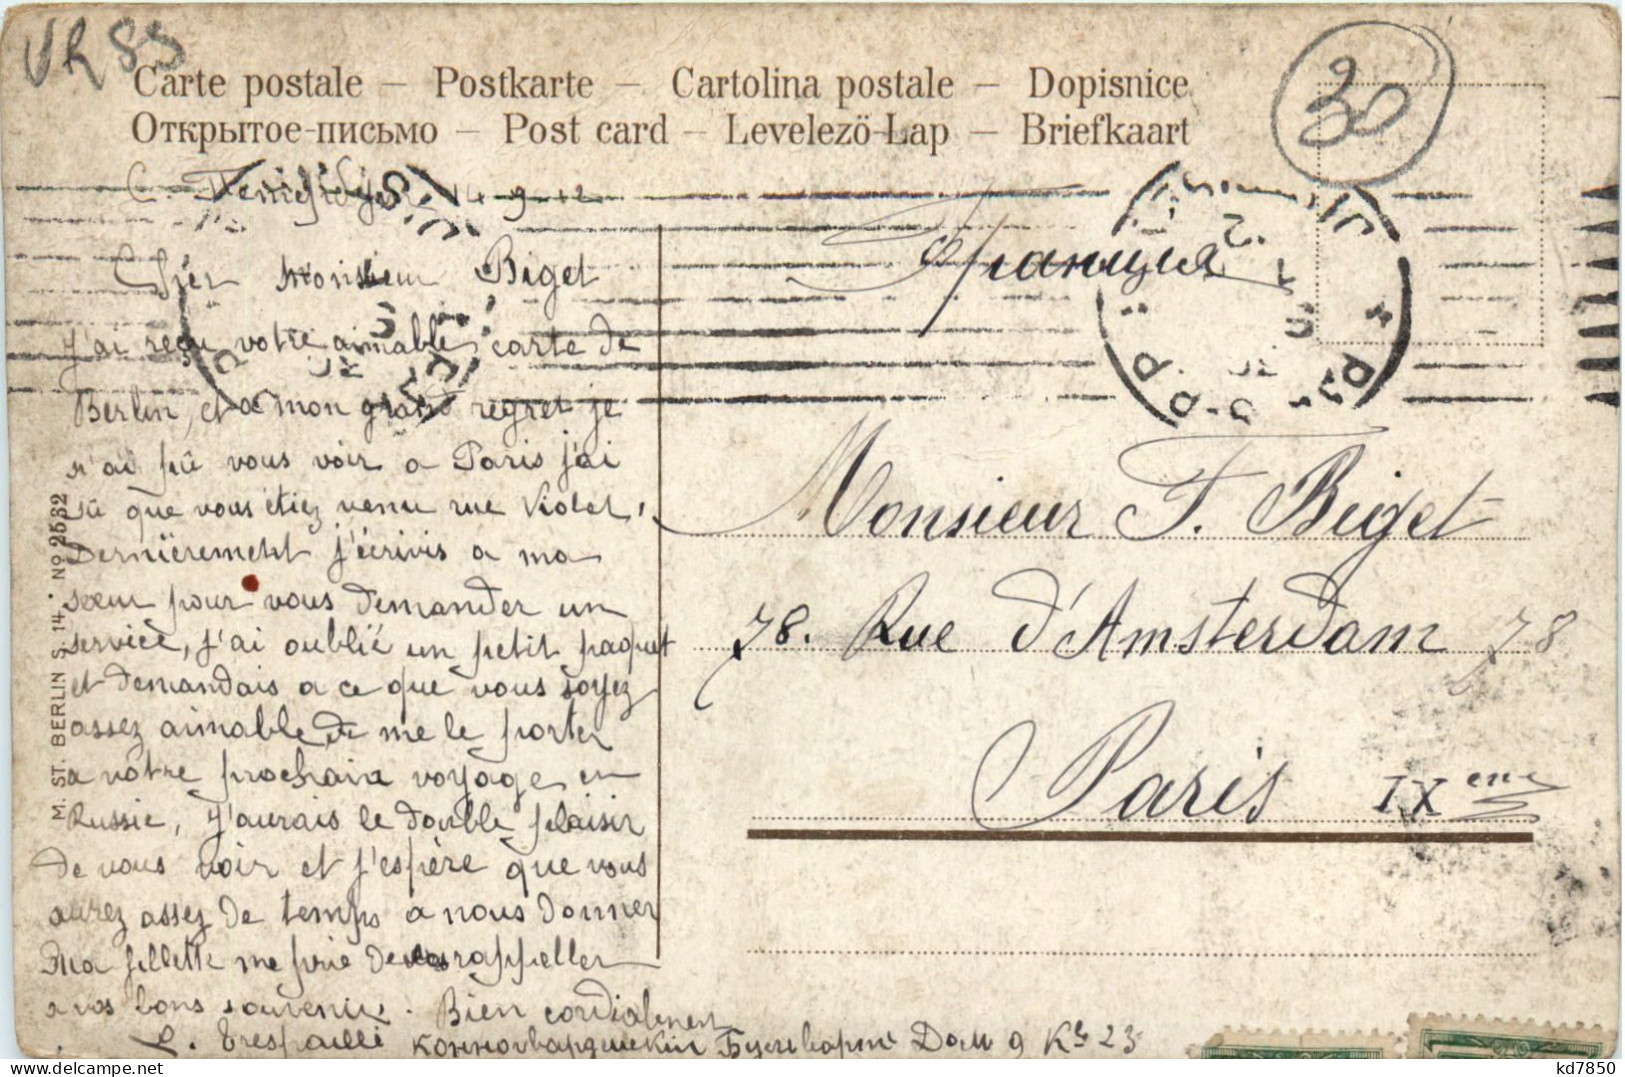 VR 83
30
Carte postale – Postkarte – Cartolina postale – Dopisnice
Открытое-письмо – Post card – Levelezö-Lap – Briefkaart
14 9 12
Франция
Cher Monsieur Biget
j'ai reçu votre aimable carte de
Berlin, et a mon grand regret je
n'ai pû vous voir a Paris j'ai
sû que vous étiez venu rue Violet,
Dernièrement j'écrivis a ma
sœur pour vous demander un
service, j'ai oublié un petit paquet
et demandais a ce que vous soyez
assez aimable de me le porter
a votre prochain voyage en
Russie, j'aurais le double plaisir
de vous voir et j'espère que vous
aurez assez de temps a nous donner
Ma fillette me prie de rappeller
a vos bons souvenirs. Bien cordialement
Конногвардейский Бульваръ Домъ 9 Кв 23
M. ST. BERLIN S. 14. No 2532
Monsieur F. Biget
78. Rue d'Amsterdam 78
Paris IXeme
kd7850